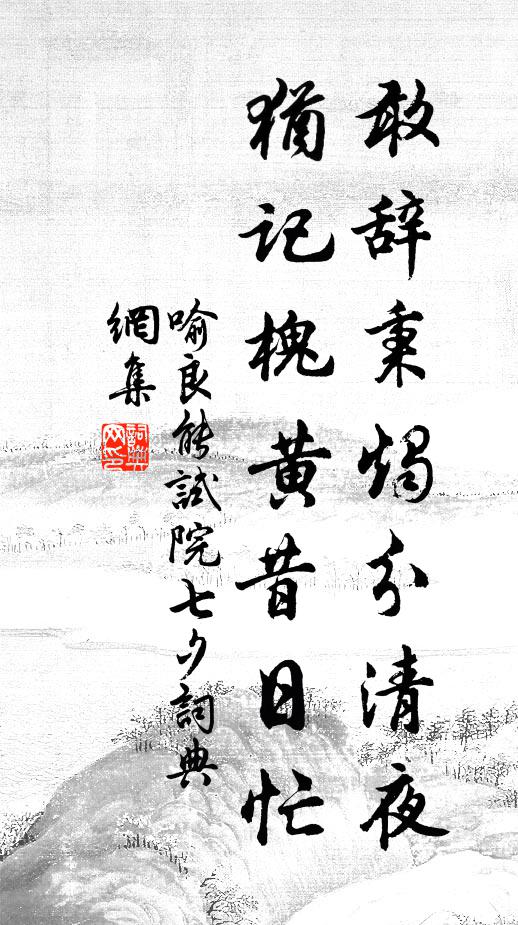 敢辞秉燭分清夜
猶記槐黄昔日忙
喻良能試院七夕詞典
網集